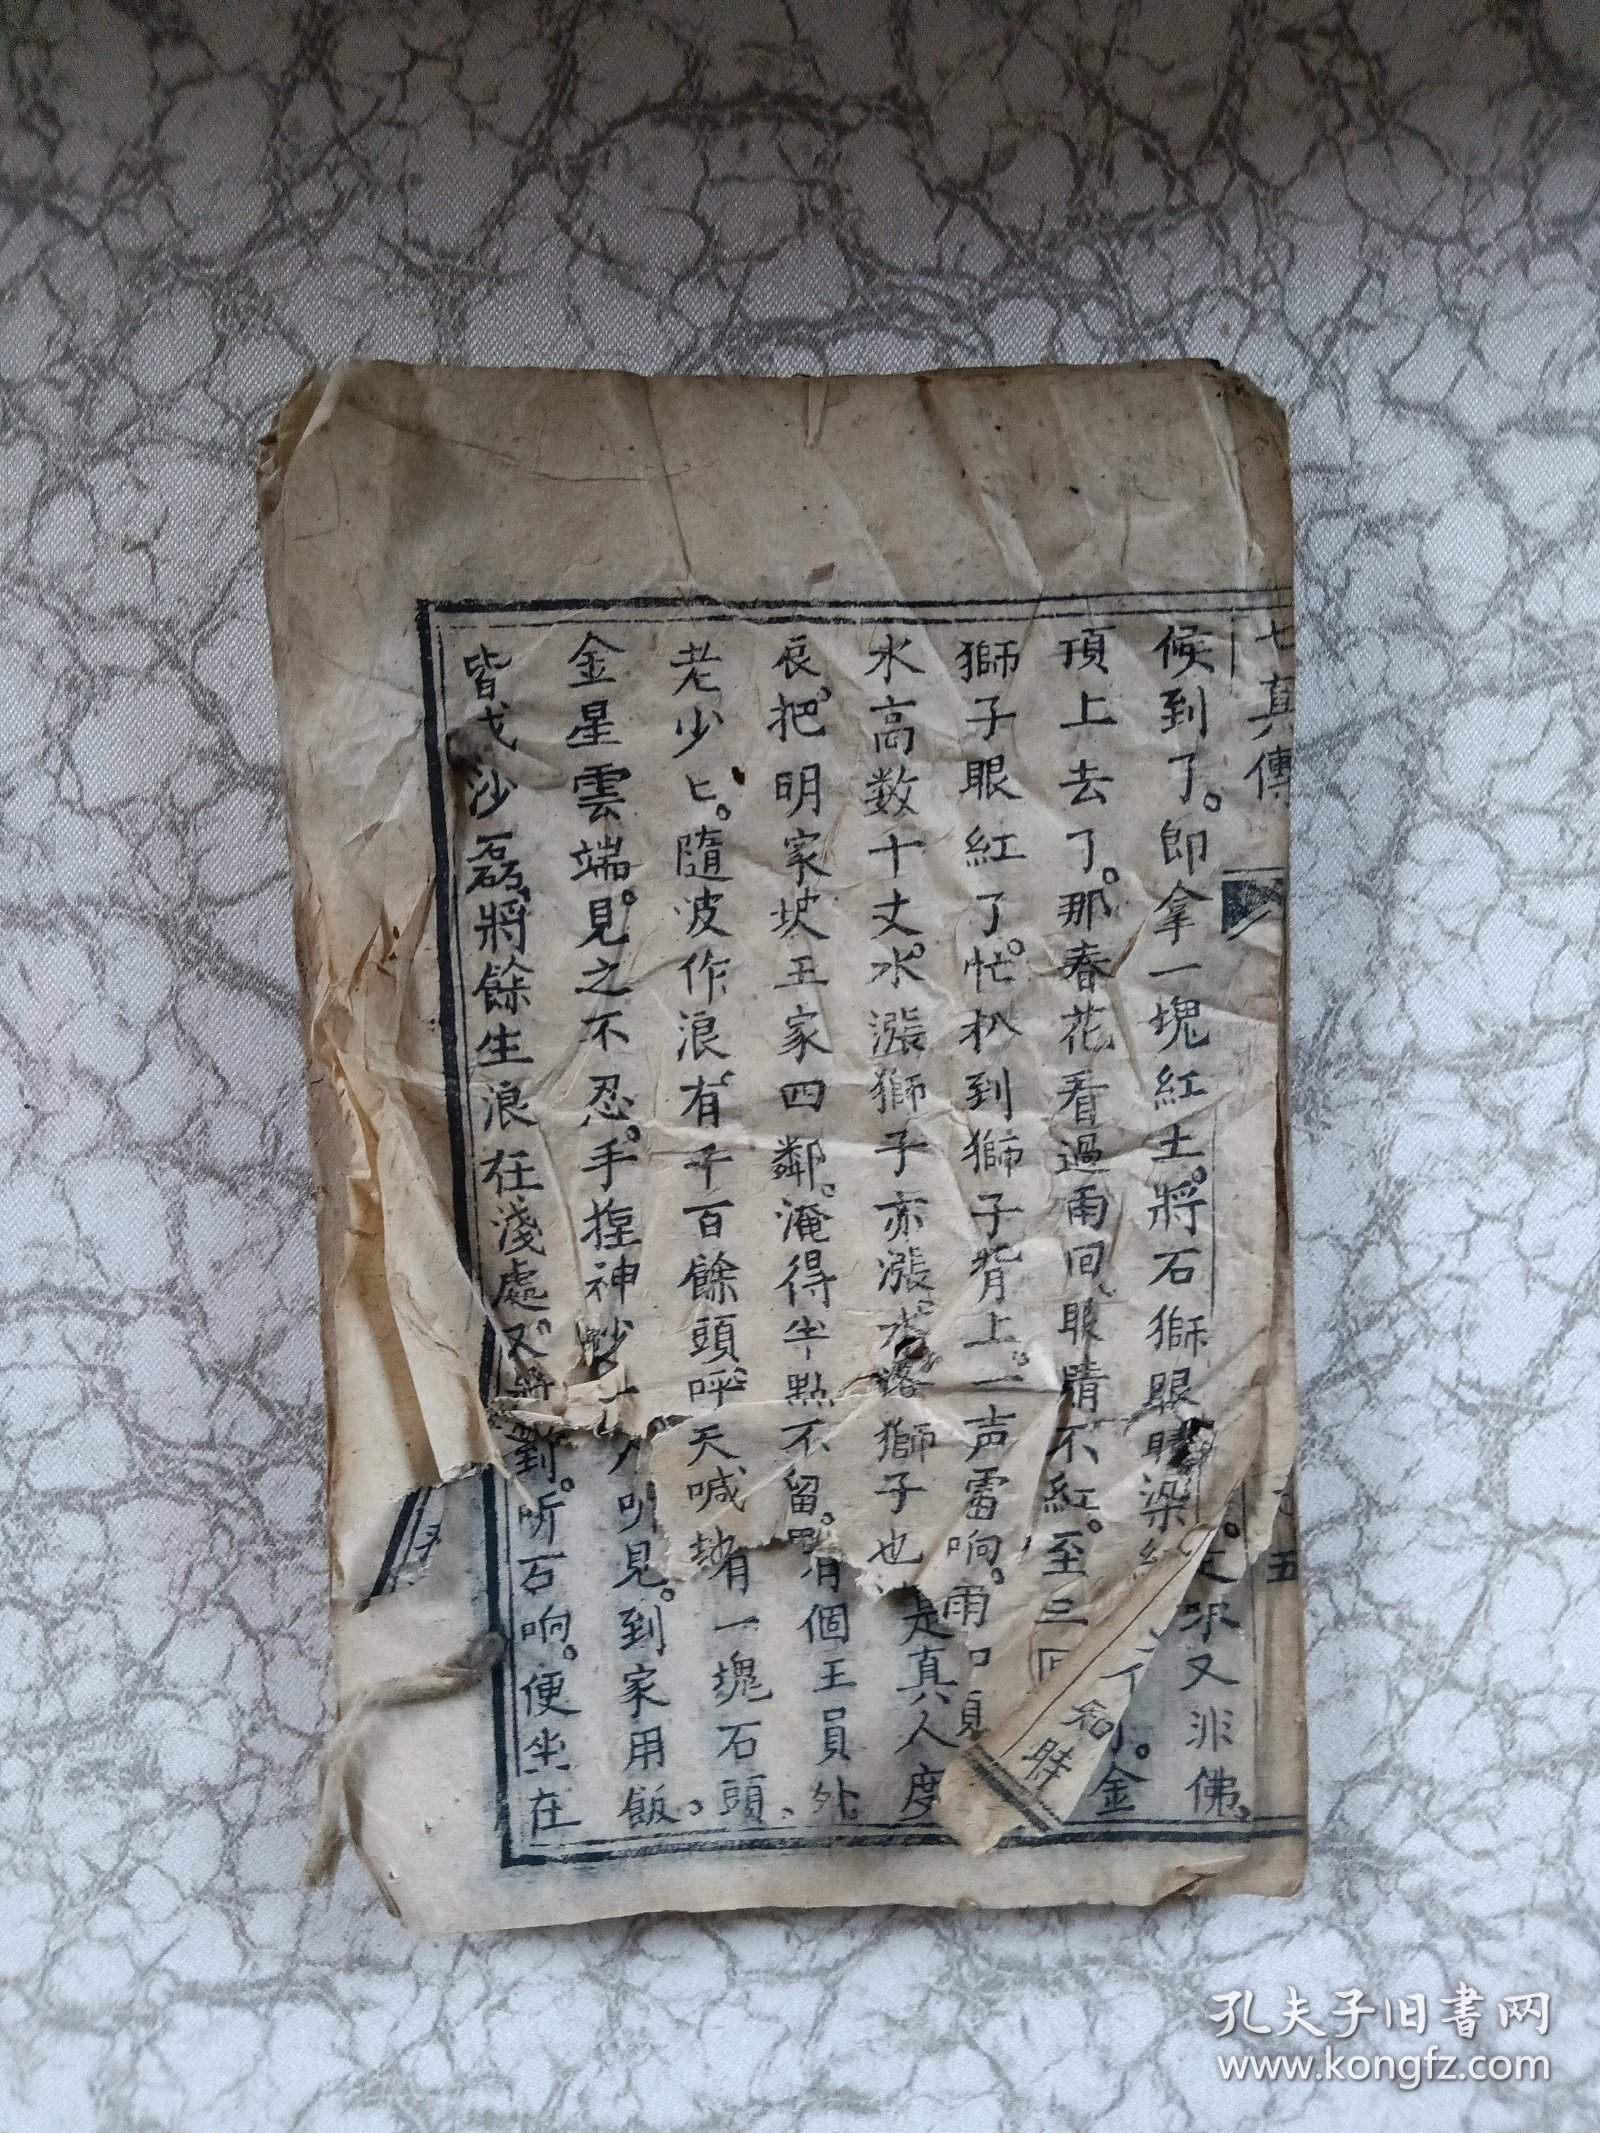 七真傳
五
候到了。即拿一塊紅土。將石獅眼睛染
頂上去了。那春花看過兩回。眼睛不紅。至三回
獅子眼紅了。忙扒到獅子背上。一声雷响。雨
水高数十丈。水漲獅子亦漲。水落獅子也
辰。把明家坡王家四鄰。淹得半點不留。
老少匕。隨波作浪。有千百餘頭。呼天喊地
金星雲端。見之不忍。手揑神
皆成沙磊。將餘生浪在淺處。又將
又非佛。
金
知時
是真人度
個王員外。
有一塊石頭、
見。到家用飯、
對。听石响。便坐在
孔夫子旧书网
www.kongfz.com